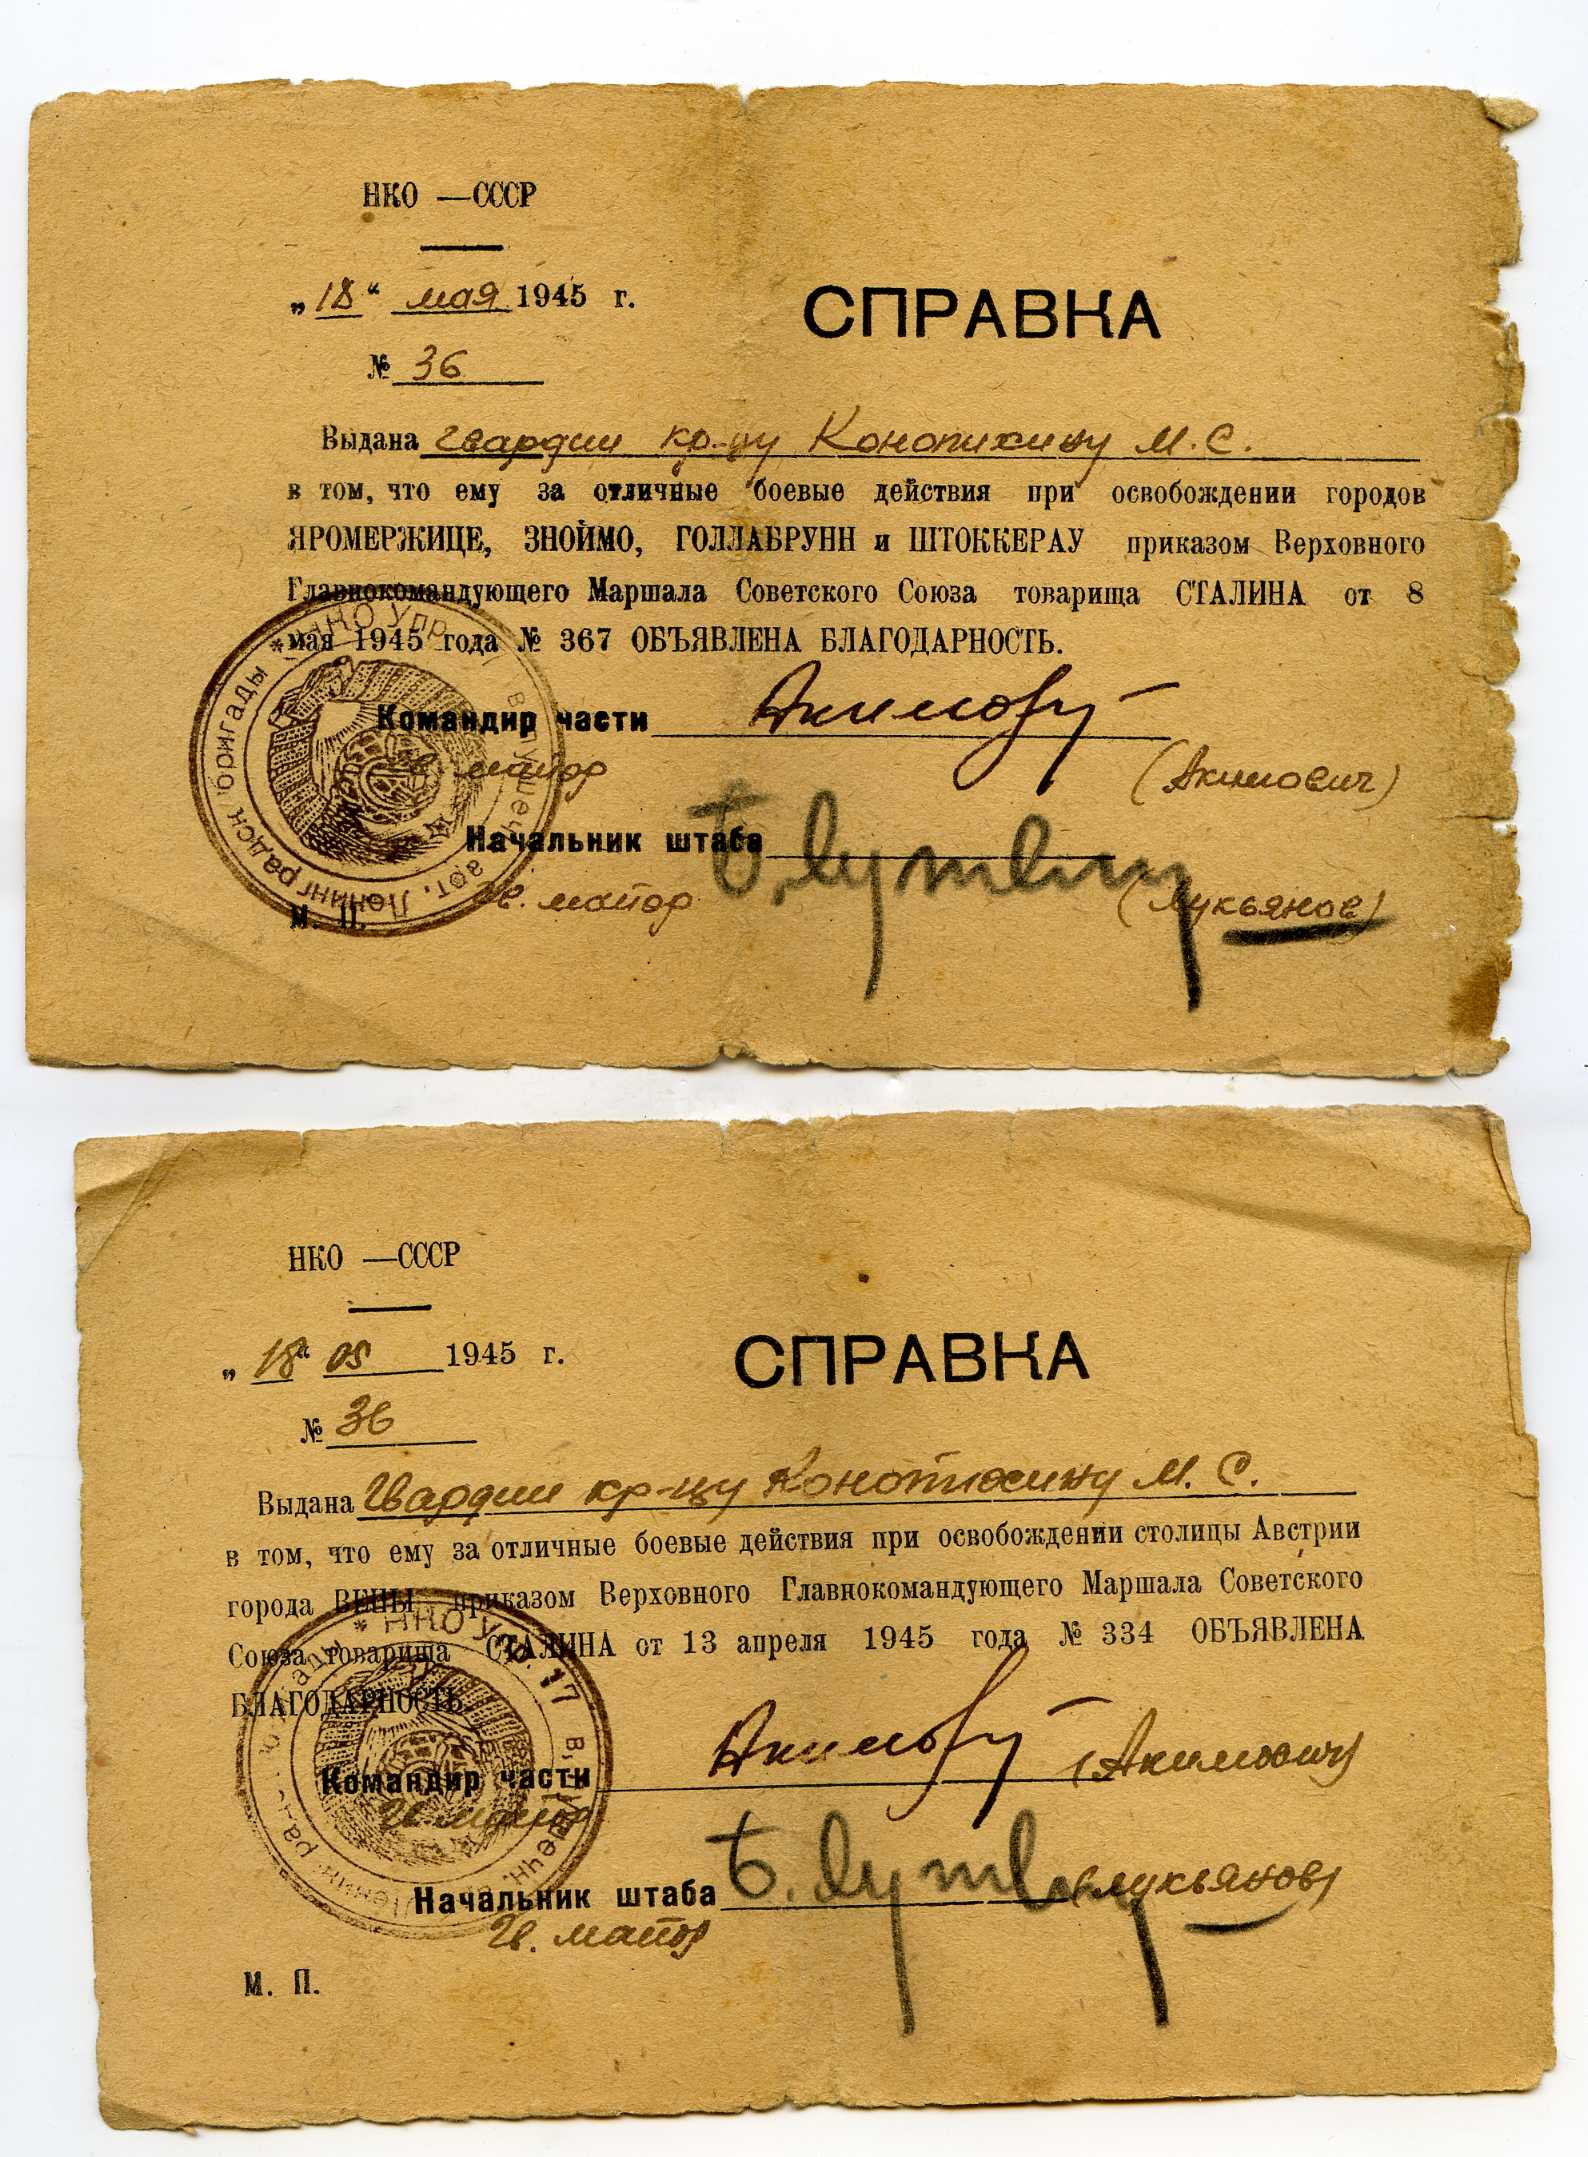 НКО —СССР
„18“ мая 1945 г.
СПРАВКА
№ 36
Выдана гвардии кр-цу Конопихину М. С.
в том, что ему за отличные боевые действия при освобождении городов
ЯРОМЕРЖИЦЕ, ЗНОЙМО, ГОЛЛАБРУНН и ШТОККЕРАУ приказом Верховного
Главнокомандующего Маршала Советского Союза товарища СТАЛИНА от 8
мая 1945 года № 367 ОБЪЯВЛЕНА БЛАГОДАРНОСТЬ.
Командир части
гв. майор (Акимович)
Начальник штаба
гв. майор (Лукьянов)
М. П.
НКО Упр. арт. Ленинградск бригады
НКО —СССР
„18“ 05 1945 г.
СПРАВКА
№ 36
Выдана Гвардии кр-цу Конопихину М. С.
в том, что ему за отличные боевые действия при освобождении столицы Австрии
города ВЕНЫ приказом Верховного Главнокомандующего Маршала Советского
Союза товарища СТАЛИНА от 13 апреля 1945 года № 334 ОБЪЯВЛЕНА
БЛАГОДАРНОСТЬ.
Командир части (Акимович)
гв. майор
Начальник штаба (Лукьянов)
Гв. майор
М. П.
НКО Упр. 17